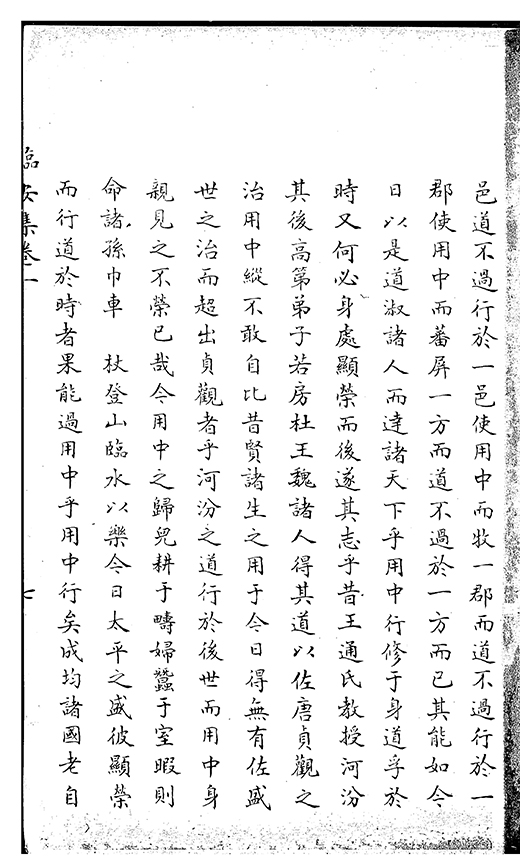 邑道不過行於一邑使用中而牧一郡而道不過行於一
郡使用中而蕃屏一方而道不過於一方而已其能如今
日以是道淑諸人而達諸天下乎用中行修于身道孚於
時又何必身處顯榮而後遂其志乎昔王通氏教授河汾
其後高第弟子若房杜王魏諸人得其道以佐唐貞觀之
治用中縱不敢自比昔賢諸生之用于今日得無有佐盛
世之治而超出貞觀者乎河汾之道行於後世而用中身
親見之不榮已哉今用中之歸兒耕于疇婦蠶于室暇則
命諸孫巾車 杖登山臨水以樂今日太平之盛彼顯榮
而行道於時者果能過用中乎用中行矣成均諸國老自
臨安集卷一 七